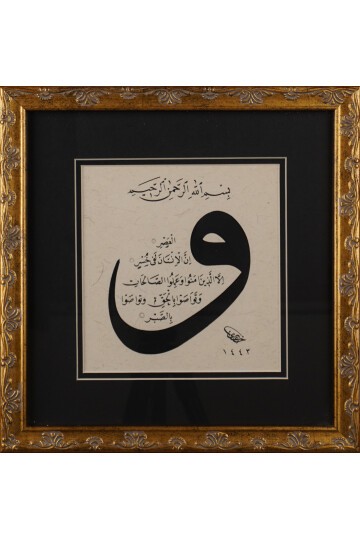 بسم الله الرحمن الرحيم
و
العصر
إن الإنسان لفي خسر
إلا الذين آمنوا وعملوا الصالحات
وتواصوا بالحق وتواصوا
بالصبر
١٤٤٣